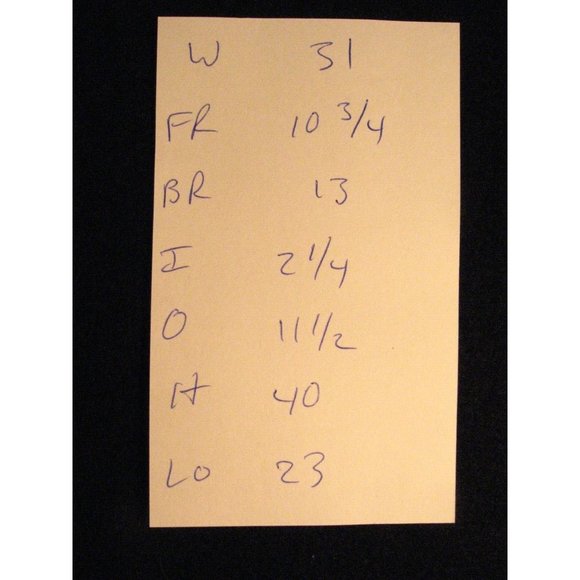 W 31
FR 10 3/4
BR 13
I 2 1/4
O 11 1/2
H 40
LO 23